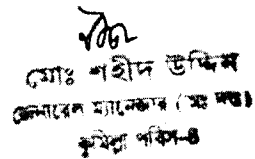 মোঃ শহীদ উদ্দিন
জেনারেল ম্যানেজার (অঃ দাঃ)
কুমিল্লা পবিস-৪